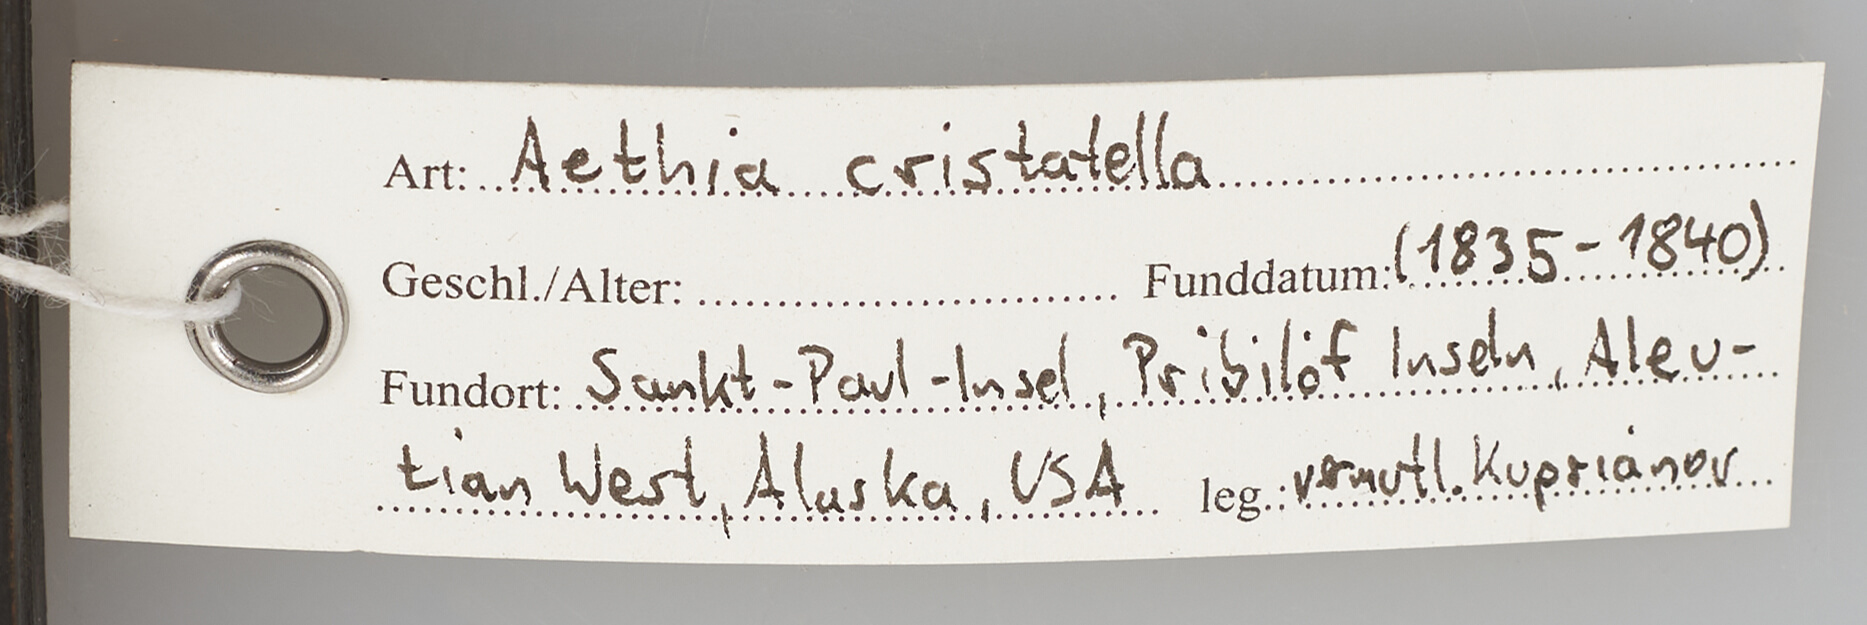 Art: Aethia cristatella
Geschl./Alter: Funddatum: (1835-1840)
Fundort: Sankt-Paul-Insel, Pribilof Inseln, Aleu-
tian West, Alaska, USA leg.: vermutl. Kuprianov